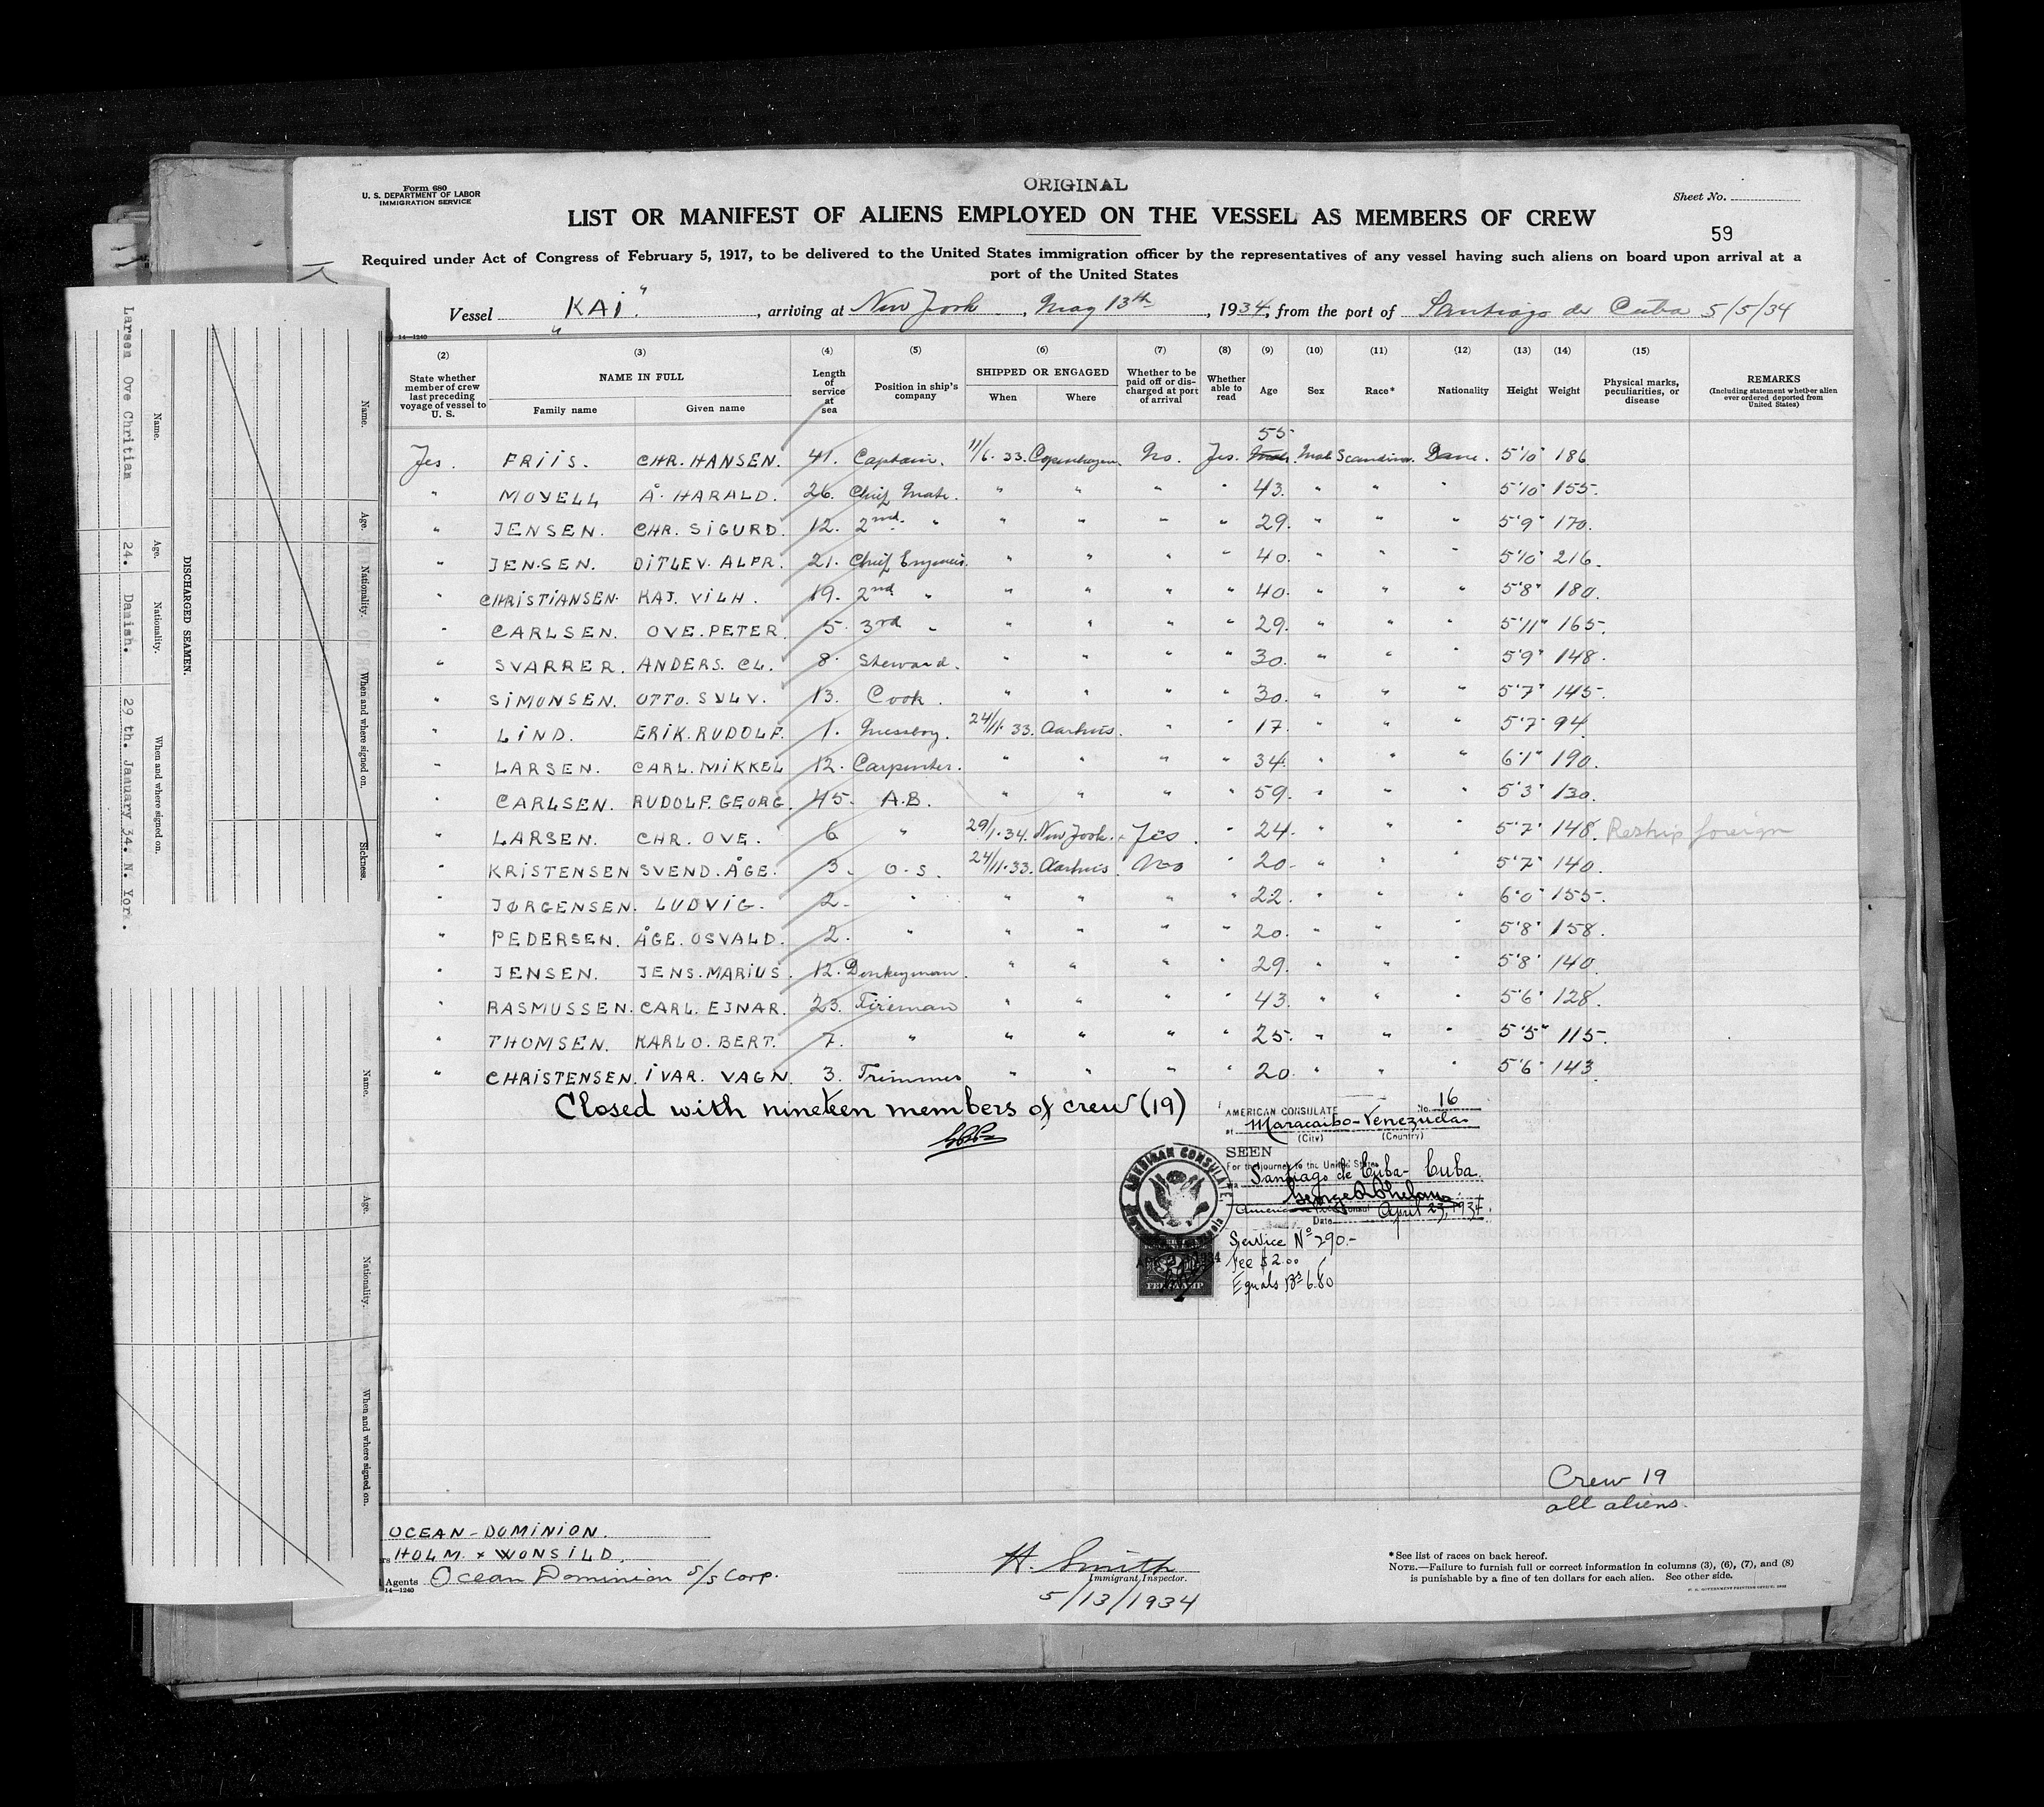 Form 680
U. S. DEPARTMENT OF LABOR
IMMIGRATION SERVICE
ORIGINAL
Sheet No.
LIST OR MANIFEST OF ALIENS EMPLOYED ON THE VESSEL AS MEMBERS OF CREW
59
Required under Act of Congress of February 5, 1917, to be delivered to the United States immigration officer by the representatives of any vessel having such aliens on board upon arrival at a
port of the United States
Vessel "KAI", arriving at New York, May 13th, 1934, from the port of Santiago de Cuba 5/5/34
14—1240
(2) (3) (4) (5) (6) (7) (8) (9) (10) (11) (12) (13) (14) (15)
State whether member of crew last preceding voyage of vessel to U. S. NAME IN FULL Family name Given name Length of service at sea Position in ship's company SHIPPED OR ENGAGED When Where Whether to be paid off or discharged at port of arrival Whether able to read Age Sex Race* Nationality Height Weight Physical marks, peculiarities, or disease REMARKS (Including statement whether alien ever ordered deported from United States)
55
Yes. FRIIS. CHR. HANSEN. 41. Captain. 11/6. 33. Copenhagen. No. Yes. Male Scandinav. Dane. 5'10" 186
" MOYELL Å. HARALD. 26. Chief Mate. " " " " 43. " " " 5'10" 155.
" JENSEN. CHR. SIGURD. 12. 2nd. " " " " " 29. " " " 5'9" 170.
" JENSEN. DITLEV. ALFR. 21. Chief Engineer. " " " " 40. " " " 5'10" 216.
" CHRISTIANSEN. KAJ. VILH. 19. 2nd " " " " " 40. " " " 5'8" 180.
" CARLSEN. OVE. PETER. 5. 3rd " " " " " 29. " " " 5'11" 165.
" SVARRER. ANDERS. CL. 8. Steward. " " " " 30. " " " 5'9" 148.
" SIMONSEN. OTTO. SYLV. 13. Cook. " " " " 30. " " " 5'7" 145.
" LIND. ERIK. RUDOLF. 1. Messboy. 24/11. 33. Aarhus. " " 17. " " " 5'7" 94.
" LARSEN. CARL. MIKKEL 12. Carpenter. " " " " 34. " " " 6'1" 190.
" CARLSEN. RUDOLF. GEORG. 45. A.B. " " " " 59. " " " 5'3" 130.
" LARSEN. CHR. OVE. 6 " 29/1. 34. New York. Yes. " 24. " " " 5'7" 148. Reship foreign
" KRISTENSEN SVEND. ÅGE. 3. O.S. 24/11. 33. Aarhus. No " 20. " " " 5'7" 140.
" JØRGENSEN. LUDVIG. 2. " " " " " 22. " " " 6'0" 155.
" PEDERSEN. ÅGE. OSVALD. 2. " " " " " 20. " " " 5'8" 158.
" JENSEN. JENS. MARIUS. 12. Donkeyman. " " " " 29. " " " 5'8" 140.
" RASMUSSEN. CARL. EJNAR. 23. Fireman " " " " 43. " " " 5'6" 128.
" THOMSEN. KARL O. BERT. 7. " " " " " 25. " " " 5'5" 115.
" CHRISTENSEN. IVAR. VAGN. 3. Trimmer " " " " 20. " " " 5'6" 143.
Closed with nineteen members of crew (19)
AMERICAN CONSULATE No. 16
at Maracaibo-Venezuela
(City) (Country)
SEEN
For the journey to the United States
via Santiago de Cuba- Cuba.
American Vice Consul
Date April 23, 1934.
AMERICAN CONSULATE
Service Nº 290.-
Fee $2.00
Equals Bs 6.80
Crew 19
all aliens.
OCEAN-DOMINION.
HOLM. & WONSILD.
Agents Ocean Dominion S/S Corp.
14—1240
H. Smith
Immigrant Inspector.
5/13/1934
*See list of races on back hereof.
NOTE.—Failure to furnish full or correct information in columns (3), (6), (7), and (8)
is punishable by a fine of ten dollars for each alien. See other side.
DISCHARGED SEAMEN.
Name. Age. Nationality. When and where signed on.
Larsen Ove Chritian 24. Danish. 29 th. January 34. N. Yor.
Name. Age. Nationality. When and where signed on. Sickness.
Name. Age. Nationality. When and where signed on.